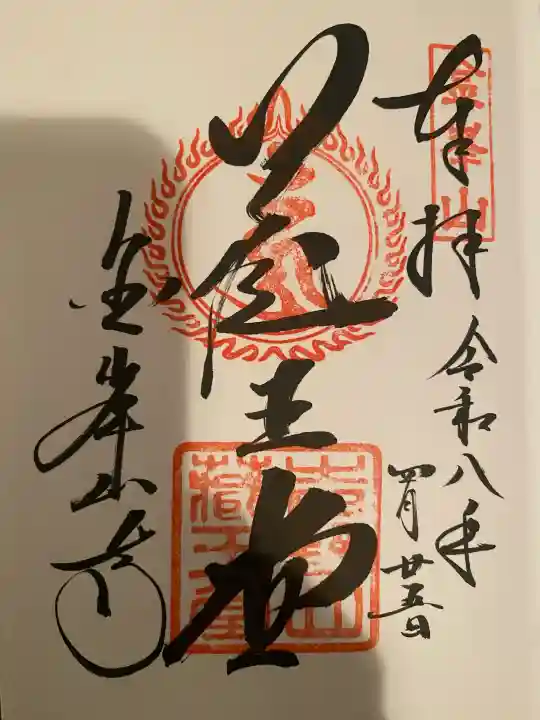 奉拝
金峯山
令和八年
四月廿五日
蔵王堂
金峯山寺